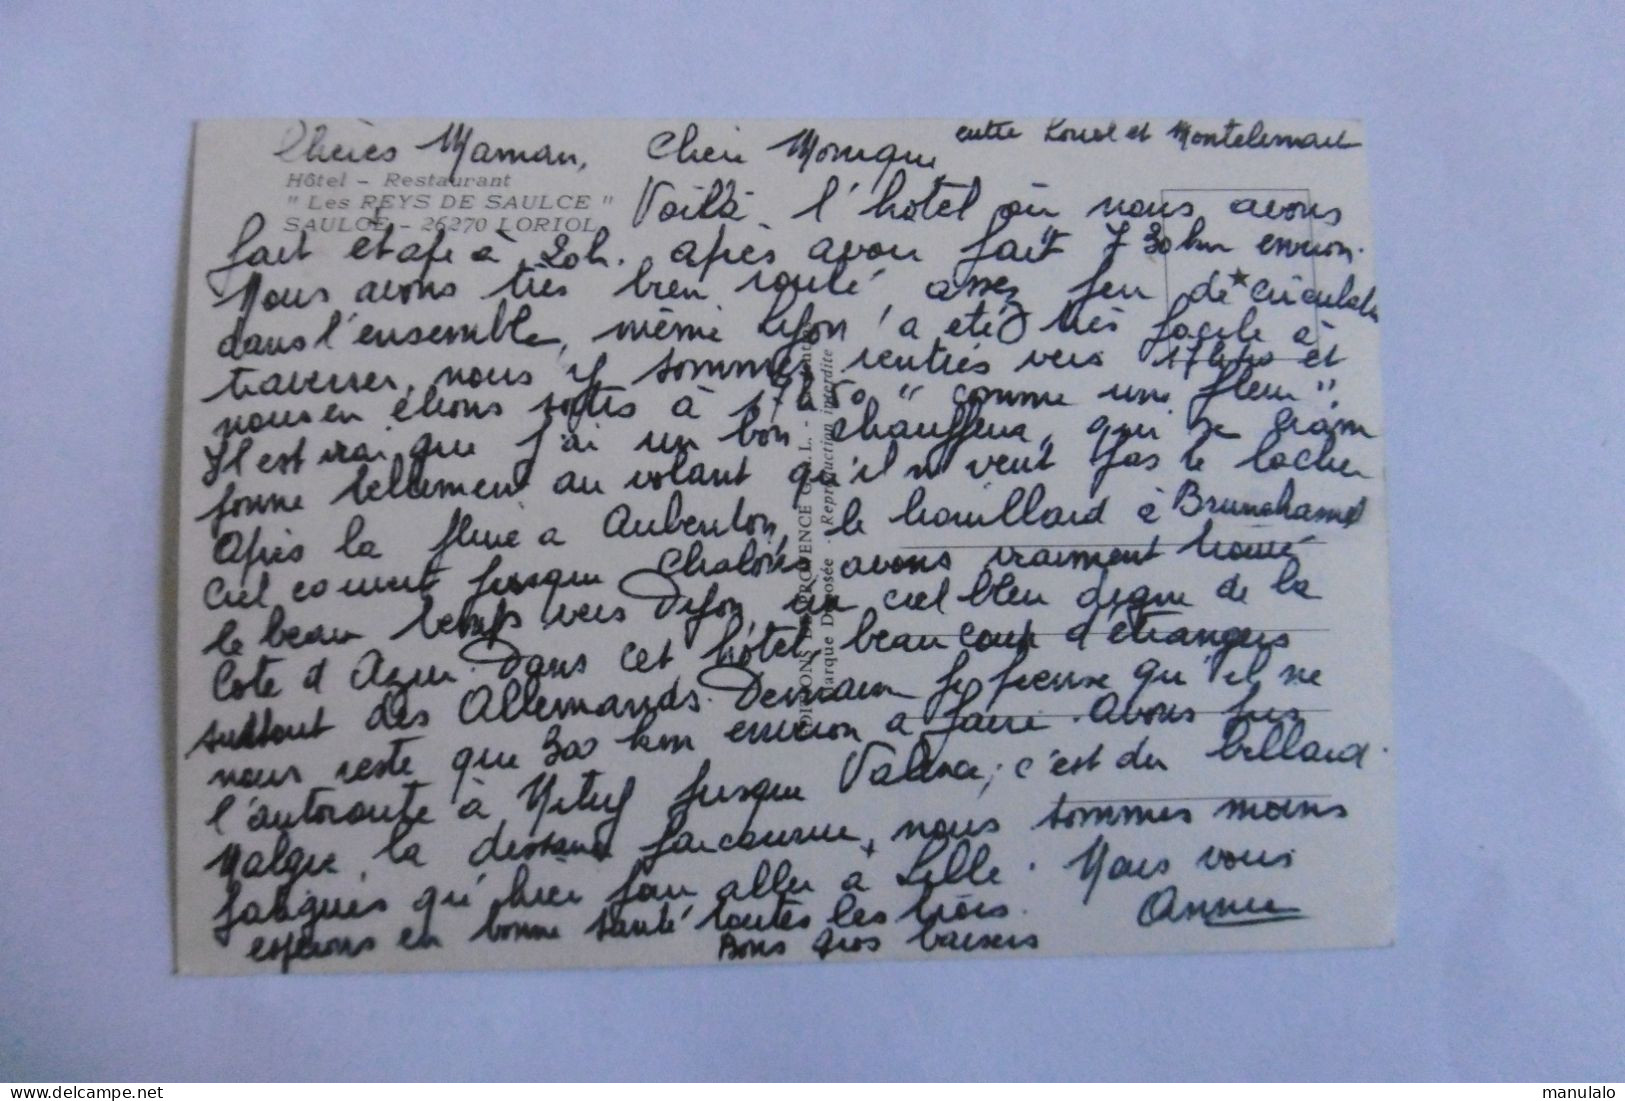 Chères Maman, Chère Monique, entre Loriol et Montelimart
Hôtel - Restaurant
" Les REYS DE SAULCE "
SAULCE - 26270 LORIOL
Voilà l'hôtel où nous avons
fait étape à 20h. après avoir fait 730 km environ.
Nous avons très bien roulé assez peu de circulation
dans l'ensemble, même Lyon a été très facile à
traverser, nous y sommes rentrés vers et
nous en étions sortis à 17h50 "comme une fleur".
Il est vrai que j'ai un bon chauffeur, qui se cram
ponne tellement au volant qu'il ne veut pas le lacher
Après la pluie à Aubenton, le brouillard à Brunehamel
Ciel couvert jusque Chalons avons vraiment trouvé
le beau temps vers Dijon, un ciel bleu digne de la
Cote d'Azur. Dans cet hôtel, beaucoup d'étrangers
surtout des Allemands. Demain je pense qu'il ne
nous reste que 300 km environ à faire. Avons pris
l'autoroute à jusque Valence, c'est du billard.
Malgré la distance parcourue, nous sommes moins
fatigués qu'hier pour aller à Lille. Mais vous
espérons en bonne santé toutes les trois.
Bons gros baisers
Annie
Marque Déposée - Reproduction interdite
manulalo